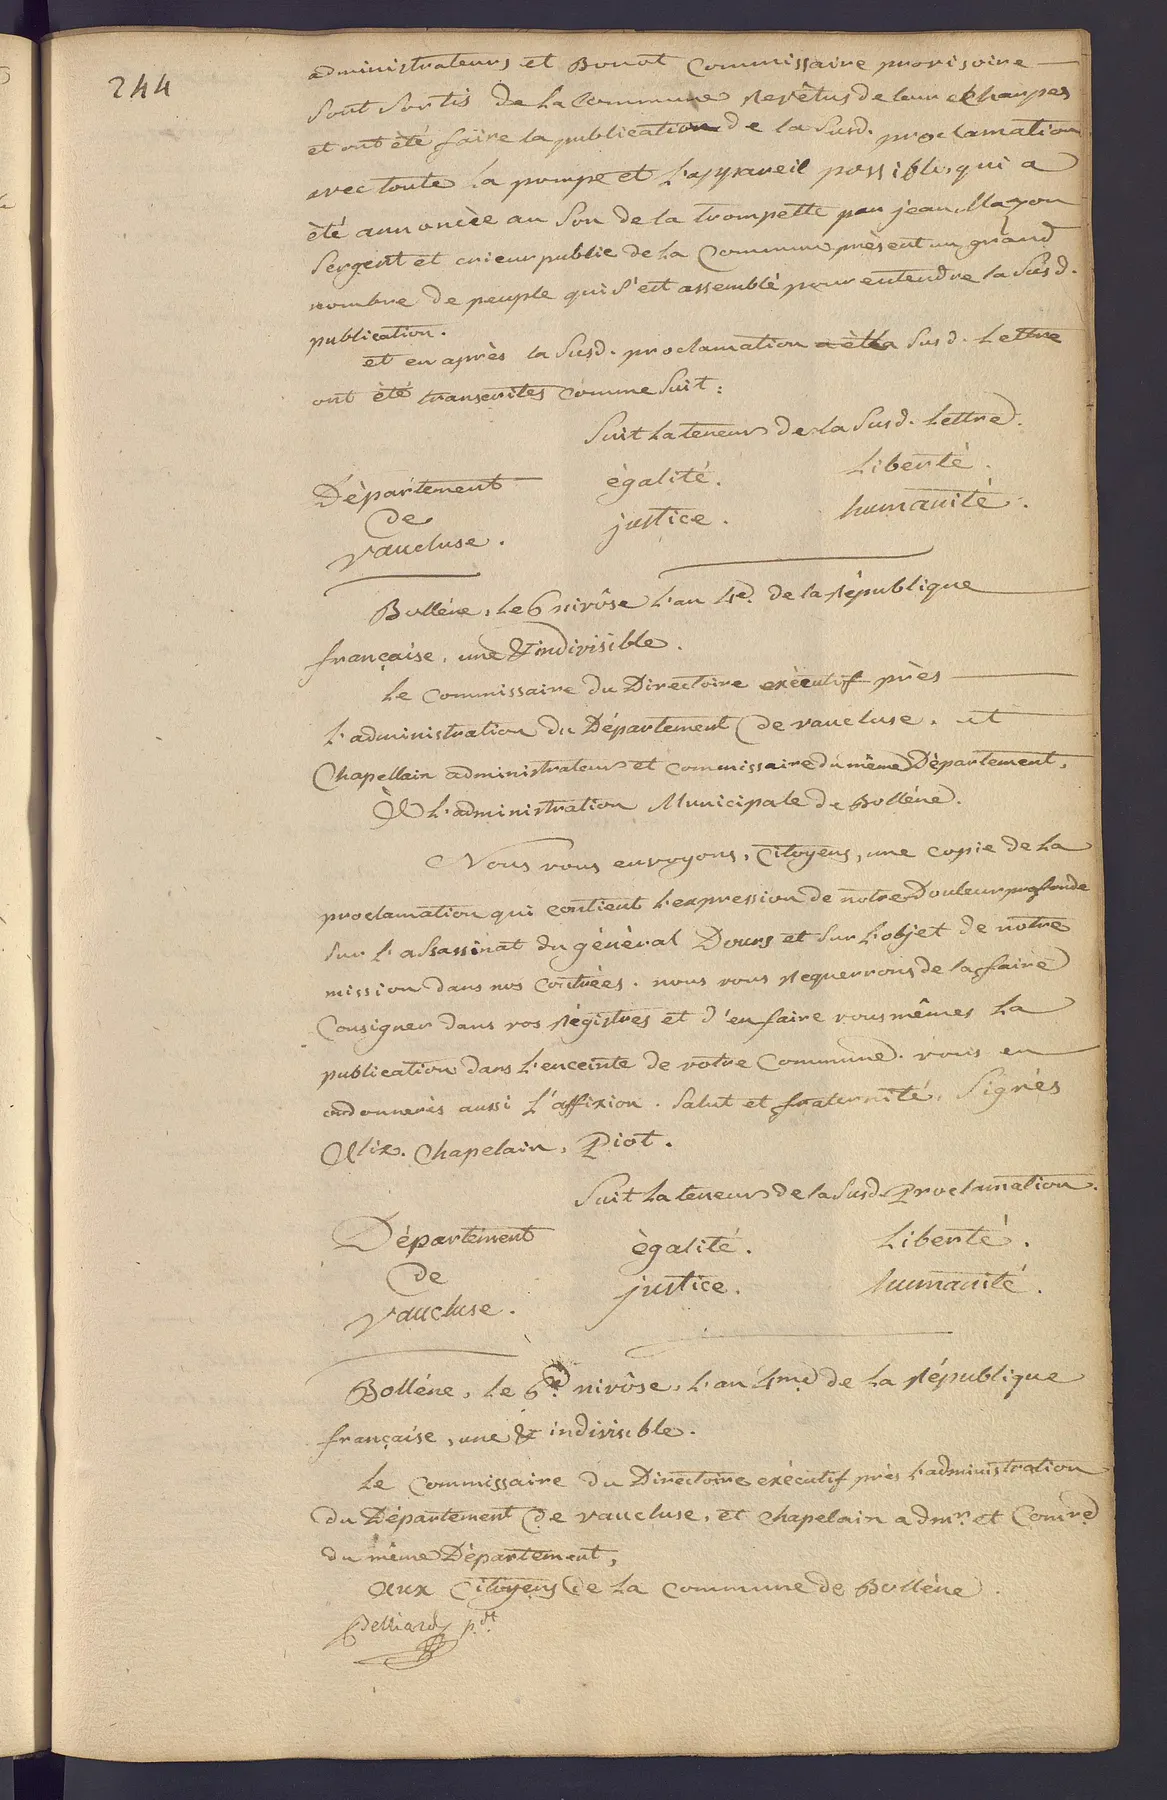 244
administrateurs et Bonot Commissaire provisoire
sont sortis de la Commune revêtus de leur écharpes
et ont été faire la publication de la susd. proclamation
avec toute la pompe et l'appareil possible, qui a
èté annoncèe au son de la trompette par jean Mayon
sergent et crieur public de la Commune prèsent un grand
nombre de peuple qui s'est assemblé pour entendre la susd.
publication.
et en après la susd. proclamation la susd. Lettre
ont èté transcrites comme suit :
Suit la teneur de la susd. Lettre.
Dèpartement ègalité. Liberté.
de justice. humanité.
vaucluse.
Bolléne, le 6 nivôse l'an 4e. de la république
française, une & indivisible.
Le Commissaire du Directoire exècutif près
l'administration du Département de vaucluse. et
Chapellain administrateur et commissaire du même Département,
À L'administration Municipale de Bolléne.
Nous vous envoyons, Citoyens, une copie de la
proclamation qui contient l'expression de notre Douleur profonde
sur l'assassinat du général Dours et sur l'objet de notre
mission dans nos contrées. nous vous requerrons de la faire
Consigner dans vos régistres et d'en faire vous mêmes la
publication dans l'enceinte de votre Commune. vous en
ordonnerès aussi l'affixion. Salut et fraternité. Signés
Alix. Chapelain, Piot.
Suit la teneur de la susd. Proclamation.
Département ègalité. Liberté.
de justice. humanité.
vaucluse.
Bolléne, le 6e. nivôse, l'an 4me de la république
française, une & indivisible.
Le Commissaire du Directoire exécutif près l'administration
du Département de vaucluse, et Chapelain admr. et Comre
du même Département,
aux Citoyens de la Commune de Bolléne.
Pelliard pdt.